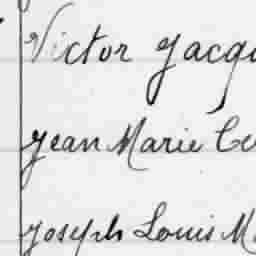 Victor Jacqu
Jean Marie Cu
Joseph Louis M